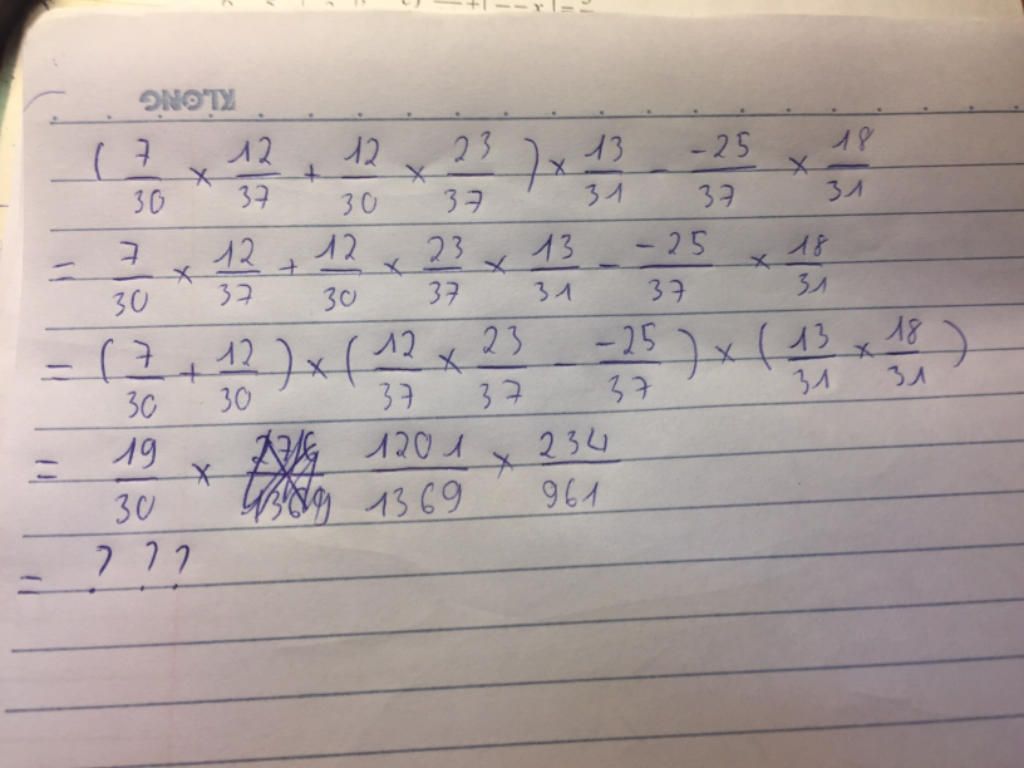 KLONG
( 7/30 × 12/37 + 12/30 × 23/37 ) × 13/31 - -25/37 × 18/31
= 7/30 × 12/37 + 12/30 × 23/37 × 13/31 - -25/37 × 18/31
= ( 7/30 + 12/30 ) × ( 12/37 × 23/37 - -25/37 ) × ( 13/31 × 18/31 )
= 19/30 × 1201/1369 × 234/961
= ? ? ?